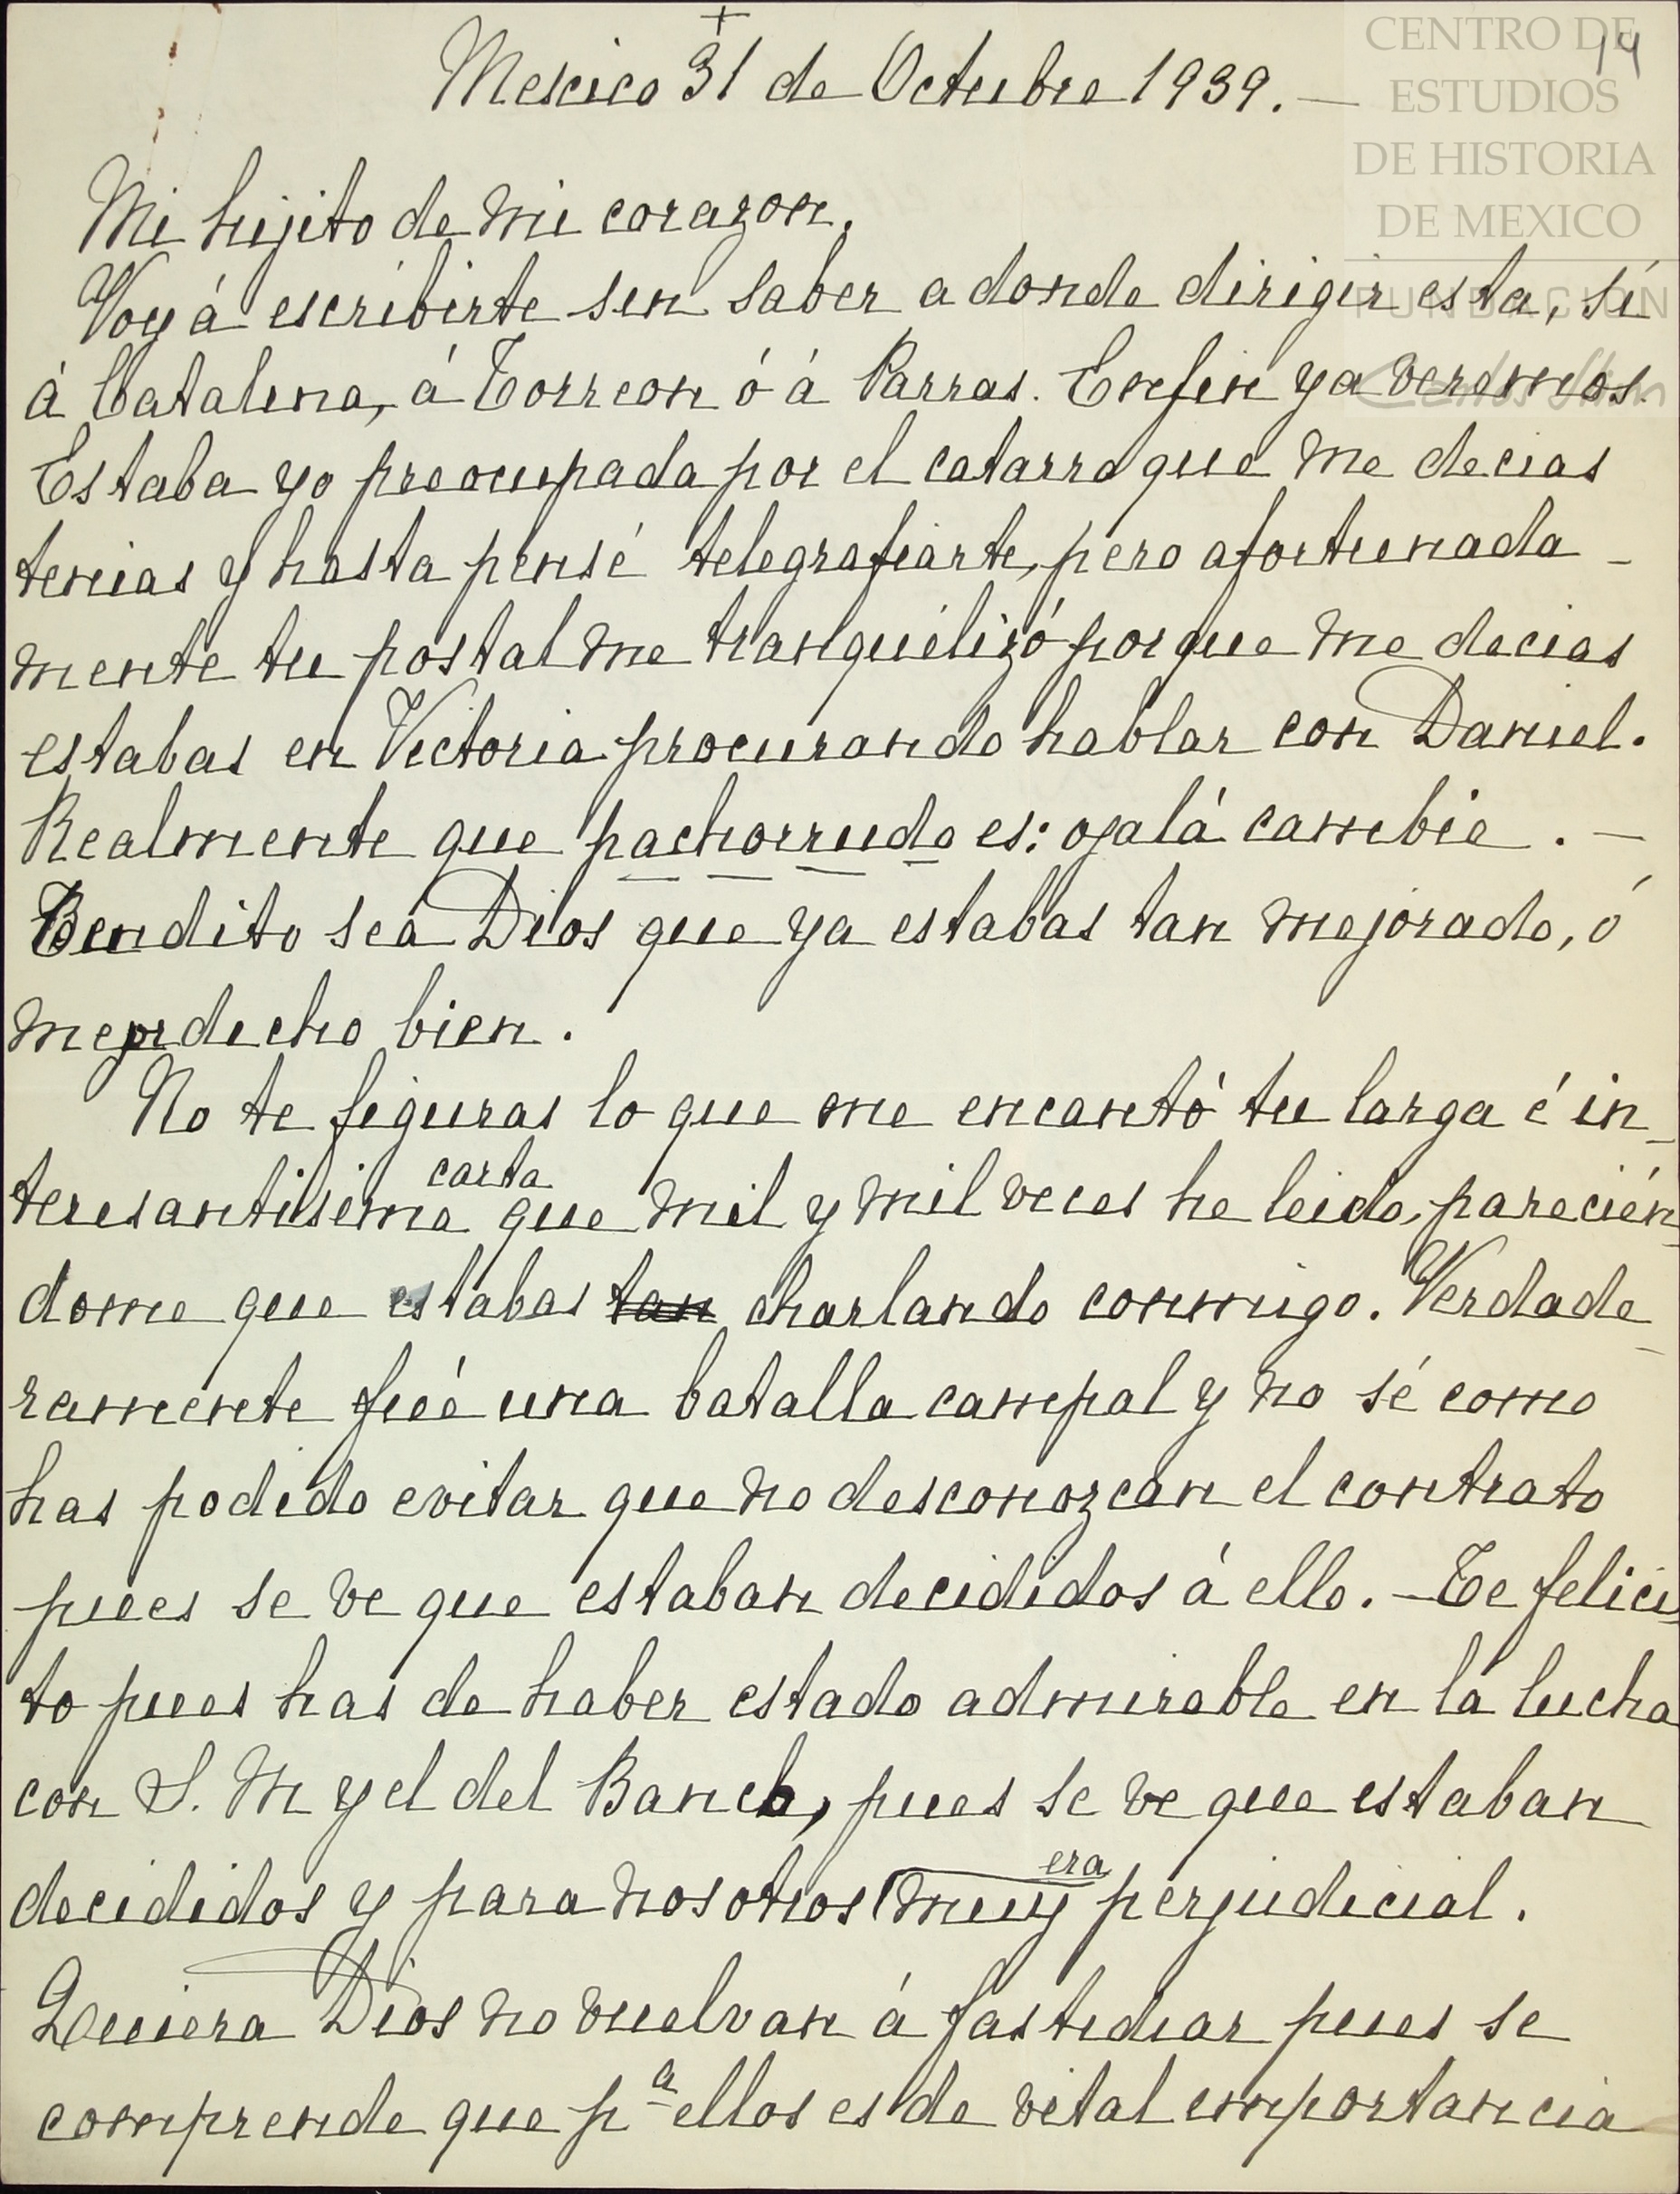 +
14
Mexico 31 de Octubre 1939.—
CENTRO DE
ESTUDIOS
DE HISTORIA
DE MEXICO
FUNDACIÓN
Carlos Slim
Mi hijito de mi corazon.
Voy á escribirte sin saber a donde dirigir esta, si
á Catalina, á Torreon ó á Parras. Enfin ya veremos.
Estaba yo preocupada por el catarro que me decias
tenias y hasta pensé telegrafiarte, pero afortunada-
mente tu postal me tranquilizó porque me decias
estabas en Victoria procurando hablar con Daniel.
Realmente que pachorrudo es: ojalá cambie. —
Bendito sea Dios que ya estabas tan mejorado, ó
mejor dicho bien.
No te figuras lo que me encantó tu larga é in-
teresantisima carta que mil y mil veces he leido, parecién-
dome que estabas tan charlando conmigo. Verdade-
ramente fué una batalla campal y no sé como
has podido evitar que no desconozcan el contrato
pues se ve que estaban decididos á ello. — Te felici-
to pues has de haber estado admirable en la lucha
con S. M y el del Banco, pues se ve que estaban
decididos y para nosotros era muy perjudicial.
Quiera Dios no vuelvan á fastidiar pues se
comprende que pª ellos es de vital importancia